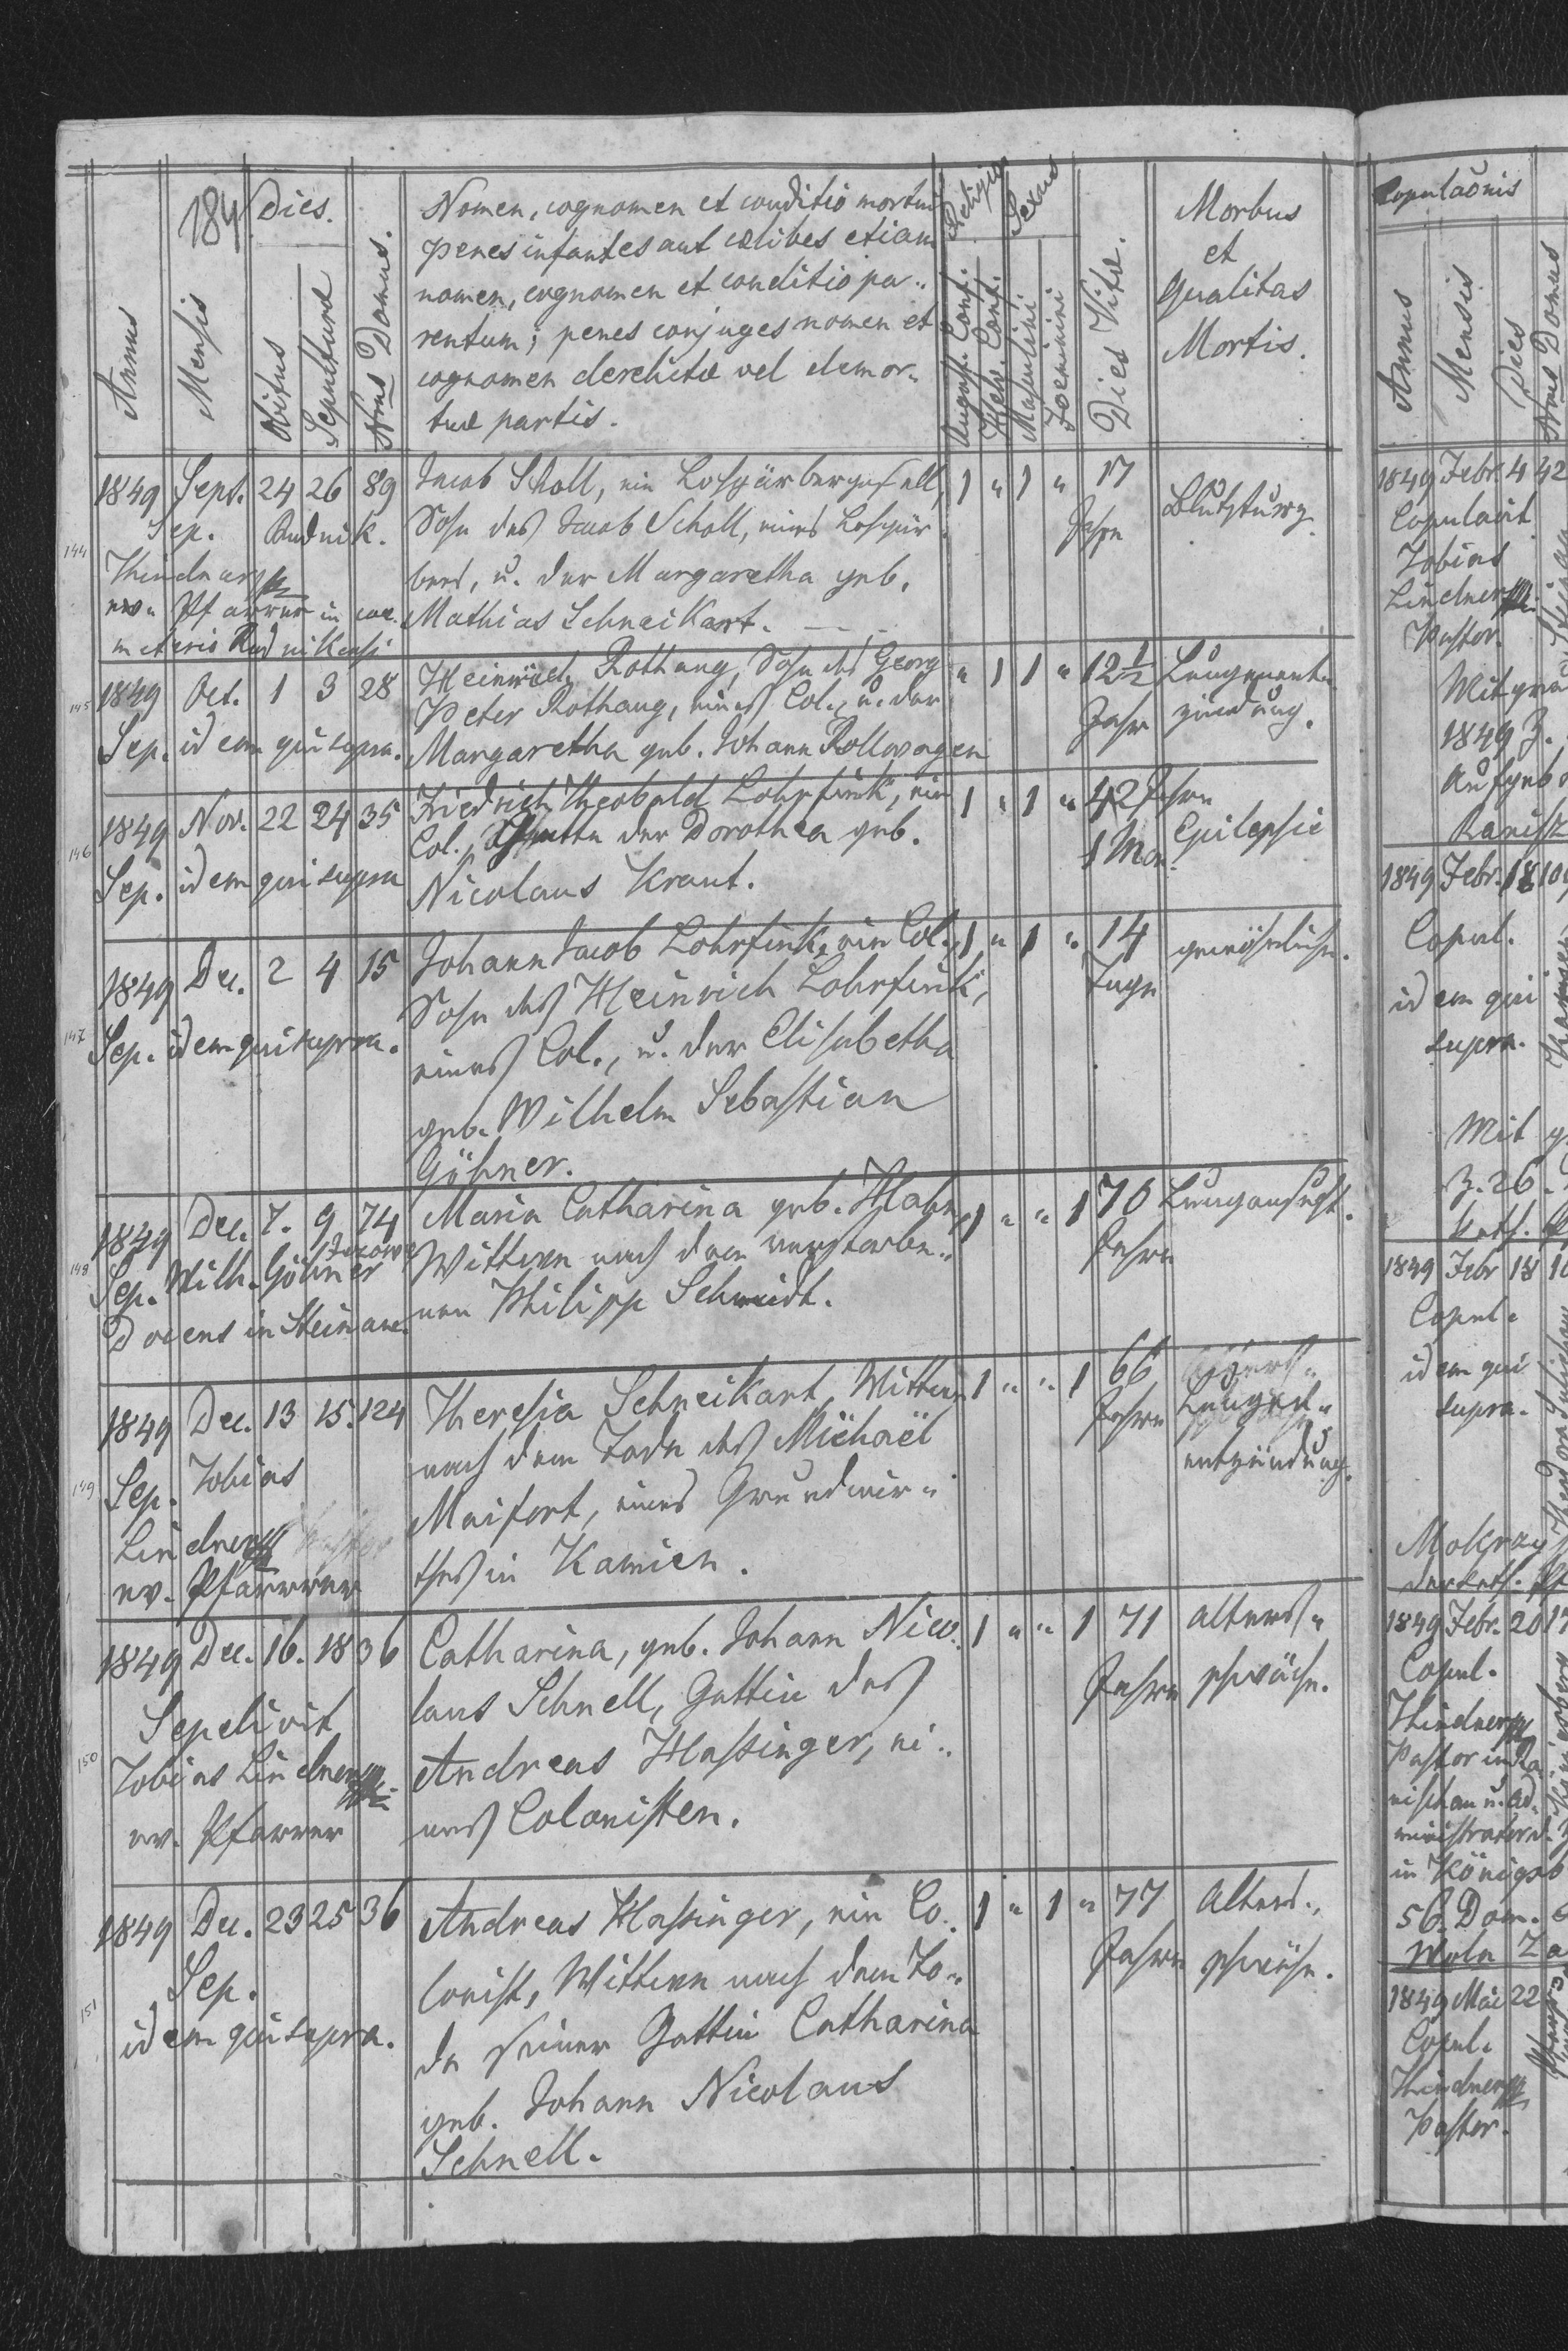 184
Dies.
Annus
Mensis
Obitus
Sepulturæ
Nrus Domus.
Nomen, cognomen et conditio mortui
penes infantes aut cælibes etiam
nomen, cognomen et conditio pa-
rentum; penes conjuges nomen et
cognomen derelictæ vel demor-
tuæ partis.
Religio
August. Conf.
Helv. Conf.
Sexus
Masculini
Foeminini
Dies Vitæ.
Morbus
et
Qualitas
Mortis.
144
1849 Sept. 24 26 89 Jacob Scholl, ein Lohgärbergesell, 1 " 1 " 17 Blutsturz.
Sep. Rudnik. Sohn des Jacob Scholl, eines Lohgär- Jahre
bers, u. der Margaretha geb.
ev. Pfarrer in coe- Mathias Schneikart.
meterio Rudnikensi
145
1849 Oct. 1 3 28 Heinrich Rothaug, Sohn des Georg " 1 1 " 12 1/2 Lungenent-
Peter Rothaug, eines Col., u. der Jahr zündung.
Sep. idem qui supra. Margaretha geb. Johann Rollwagen
146
1849 Nov. 22 24 35 Friedrich Theobald Lohrfink, ein 1 " 1 " 42 Jahre
Col., Gatte der Dorothea geb. 1 Mon. Epilepsie
Sep. idem qui supra Nicolaus Kraut.
147
1849 Dec. 2 4 15 Johann Jacob Lohrfink, ein Col., 1 " 1 " 14 gewöhnliche.
Sohn des Heinrich Lohrfink, Tage
Sep. idem qui supra. eines Col., u. der Elisabetha
geb. Wilhelm Sebastian
Göhner.
148
1849 Dec. 7. 9 74 Maria Catharina geb. Hahn, 1 " " 1 70 Lungensucht.
Jezowe
Sep. Wilh. Göhner Wittwe nach dem verstorbe- Jahre
Docens in Steinau. nen Philipp Schmidt.
149
1849 Dec. 13 15. 124 Theresia Schneikart, Wittwe 1 " " 1 66
Sep. Tobias nach dem Tode des Michaël Jahre Lungen-
Lindner Maifort, eines Grundwir- entzündung.
ev. Pfarrer thes in Kamien.
150
1849 Dec. 16. 18 36 Catharina, geb. Johann Nico- 1 " " 1 71 Alters-
Sepelivit laus Schnell, Gattin des Jahre schwäche.
Tobias Lindner Andreas Hassinger, ei-
ev. Pfarrer nes Colonisten.
151
1849 Dec. 23 25 36 Andreas Hassinger, ein Co- 1 " 1 " 77 Alters-
Sep. lonist, Wittwer nach dem To- Jahre schwäche.
idem qui supra. de seiner Gattin Catharina
geb. Johann Nicolaus
Schnell.
Copulaõnis
Annus
Mensis
Dies
Nrus Domus
1849 Febr. 4 42
Copulavit
Tobias
Lindner
Pastor.
1849 Z.
Aufgeb
1849 Febr. 18 10
Copul.
idem qui
supra.
Mit
Z. 26.
kath.
1849 Febr 18
Copul.
idem qui
supra.
Mokrzy
1849 Febr. 20 17
Copul.
Lindner
Pastor in Ra-
nischau u. Ad-
ministrator d.
in Königsb
56. Dom.
Wola Za
1849 Mai 22
Copul.
Lindner
Pastor.